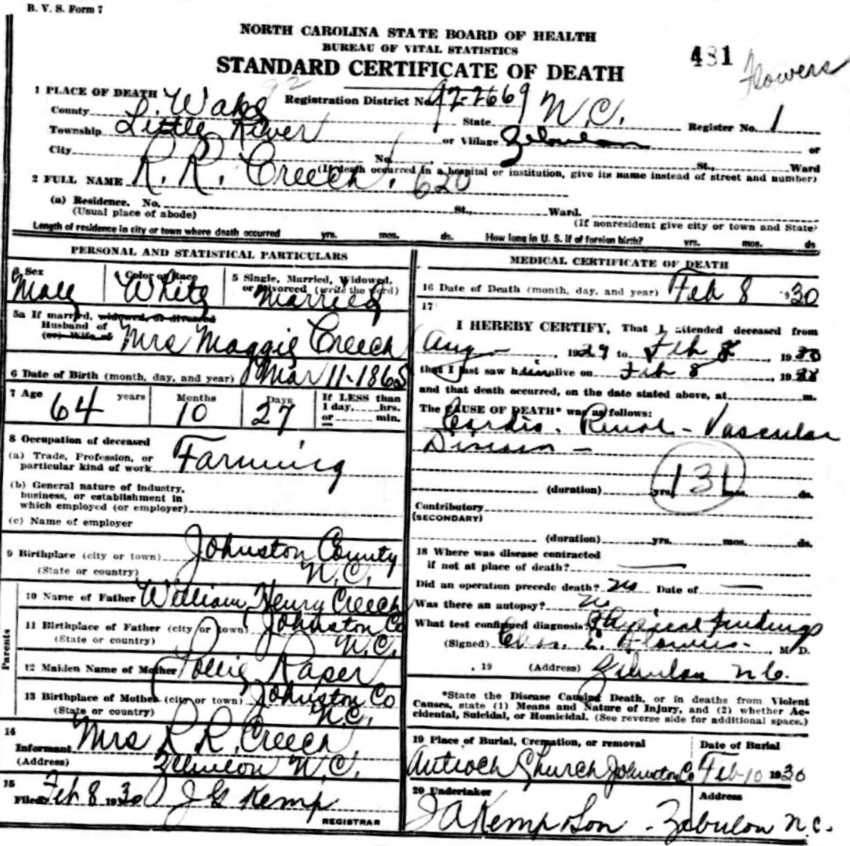 B. V. S. Form 7
NORTH CAROLINA STATE BOARD OF HEALTH
BUREAU OF VITAL STATISTICS
STANDARD CERTIFICATE OF DEATH
481 Flowers
1 PLACE OF DEATH
County Wake Registration District No. 92-2669 State N.C. Register No. 1
Township Little River or Village Zebulon or
City No. St., Ward
(If death occurred in a hospital or institution, give its name instead of street and number)
2 FULL NAME R. R. Creech. 620
(a) Residence. No. St., Ward.
(Usual place of abode) (If nonresident give city or town and State)
Length of residence in city or town where death occurred yrs. mos. ds. How long in U. S. if of foreign birth? yrs. mos. ds
PERSONAL AND STATISTICAL PARTICULARS
Sex Color or Race 5 Single, Married, Widowed,
or Divorced (write the word)
Male White Married
5a If married, widowed, or divorced
Husband of
(or) Wife of Mrs Maggie Creech
6 Date of Birth (month, day, and year) Mar 11-1865
7 Age 64 years Months 10 Days 27 If LESS than
1 day, hrs.
or min.
8 Occupation of deceased
(a) Trade, Profession, or
particular kind of work Farming
(b) General nature of industry,
business, or establishment in
which employed (or employer)
(c) Name of employer
9 Birthplace (city or town) Johnston County
(State or country) N.C.
Parents
10 Name of Father William Henry Creech
11 Birthplace of Father (city or town) Johnston Co
(State or country) N.C.
12 Maiden Name of Mother Pollie Raper
13 Birthplace of Mother (city or town) Johnston Co
(State or country) N.C.
14
Informant Mrs R R. Creech
(Address) Zebulon N.C.
15
Filed Feb 8 1930 J G Kemp
REGISTRAR
MEDICAL CERTIFICATE OF DEATH
16 Date of Death (month, day, and year) Feb 8 1930
17
I HEREBY CERTIFY, That I attended deceased from
Aug 1929 to Feb 8 1930
that I last saw him alive on Feb 8 19
and that death occurred, on the date stated above, at m.
The CAUSE OF DEATH* was as follows:
Cardio-Renal-Vascular
Disease -
(duration) yrs. 131 mos. ds.
Contributory
(SECONDARY)
(duration) yrs. mos. ds.
18 Where was disease contracted
if not at place of death?
Did an operation precede death? No Date of
Was there an autopsy? No
What test confirmed diagnosis? Physical findings
(Signed) Chas. E. Flowers M. D.
, 19 (Address) Zebulon N.C.
*State the Disease Causing Death, or in deaths from Violent
Causes, state (1) Means and Nature of Injury, and (2) whether Ac-
cidental, Suicidal, or Homicidal. (See reverse side for additional space.)
19 Place of Burial, Cremation, or removal Date of Burial
Antioch Church Johnston Co Feb-10 1930
20 Undertaker Address
J A Kemp & Son - Zebulon N.C.